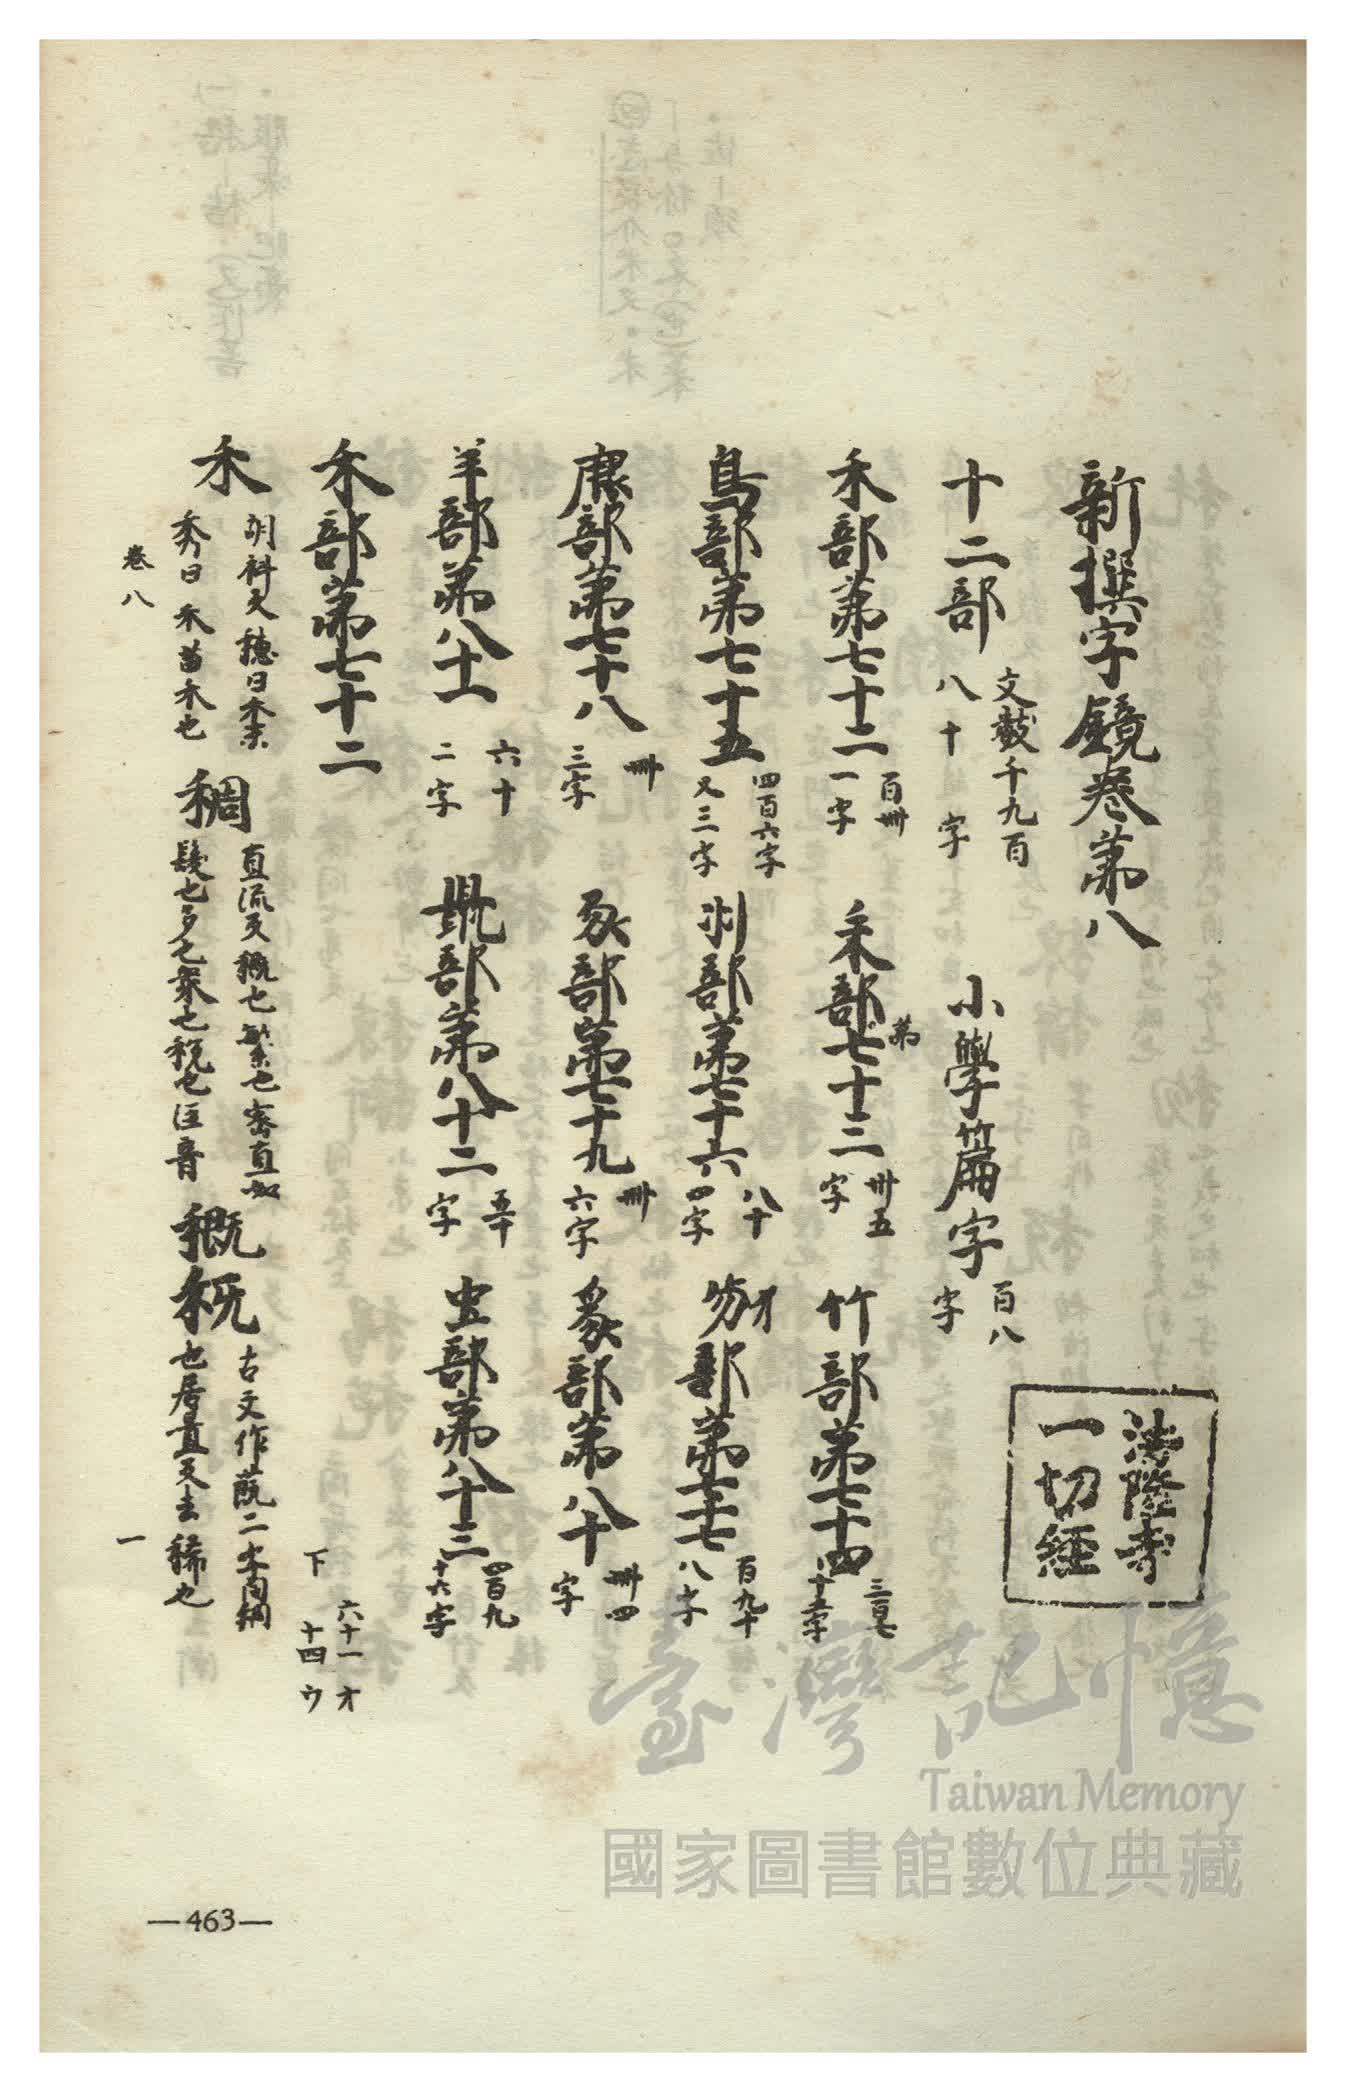 新撰字鏡卷第八
法隆寺
一切經
十二部 文數千九百八十字 小學篇字 百八字
禾部第七十二 百卌一字 耒部第七十三 卅五字 竹部第七十四 三百七十五字
鳥部第七十五 四百六字又三字 羽部第七十六 八十四字 部第七十七 百九十八字
鹿部第七十八 卌三字 豕部第七十九 卌六字 象部第八十 卌四字
羊部第八十一 六十二字 部第八十二 五十字 虫部第八十三 四百九十六字
禾部第七十二
下
六十一オ
十四ウ
禾 胡科反穗曰禾末秀曰禾苗禾也 稠 直流反穊也繁也密直如髮也多也衆也穊也注音 穊
古文作 二字同稠也居置反去稀也
卷八
一
—463—
臺灣記憶
Taiwan Memory
國家圖書館數位典藏